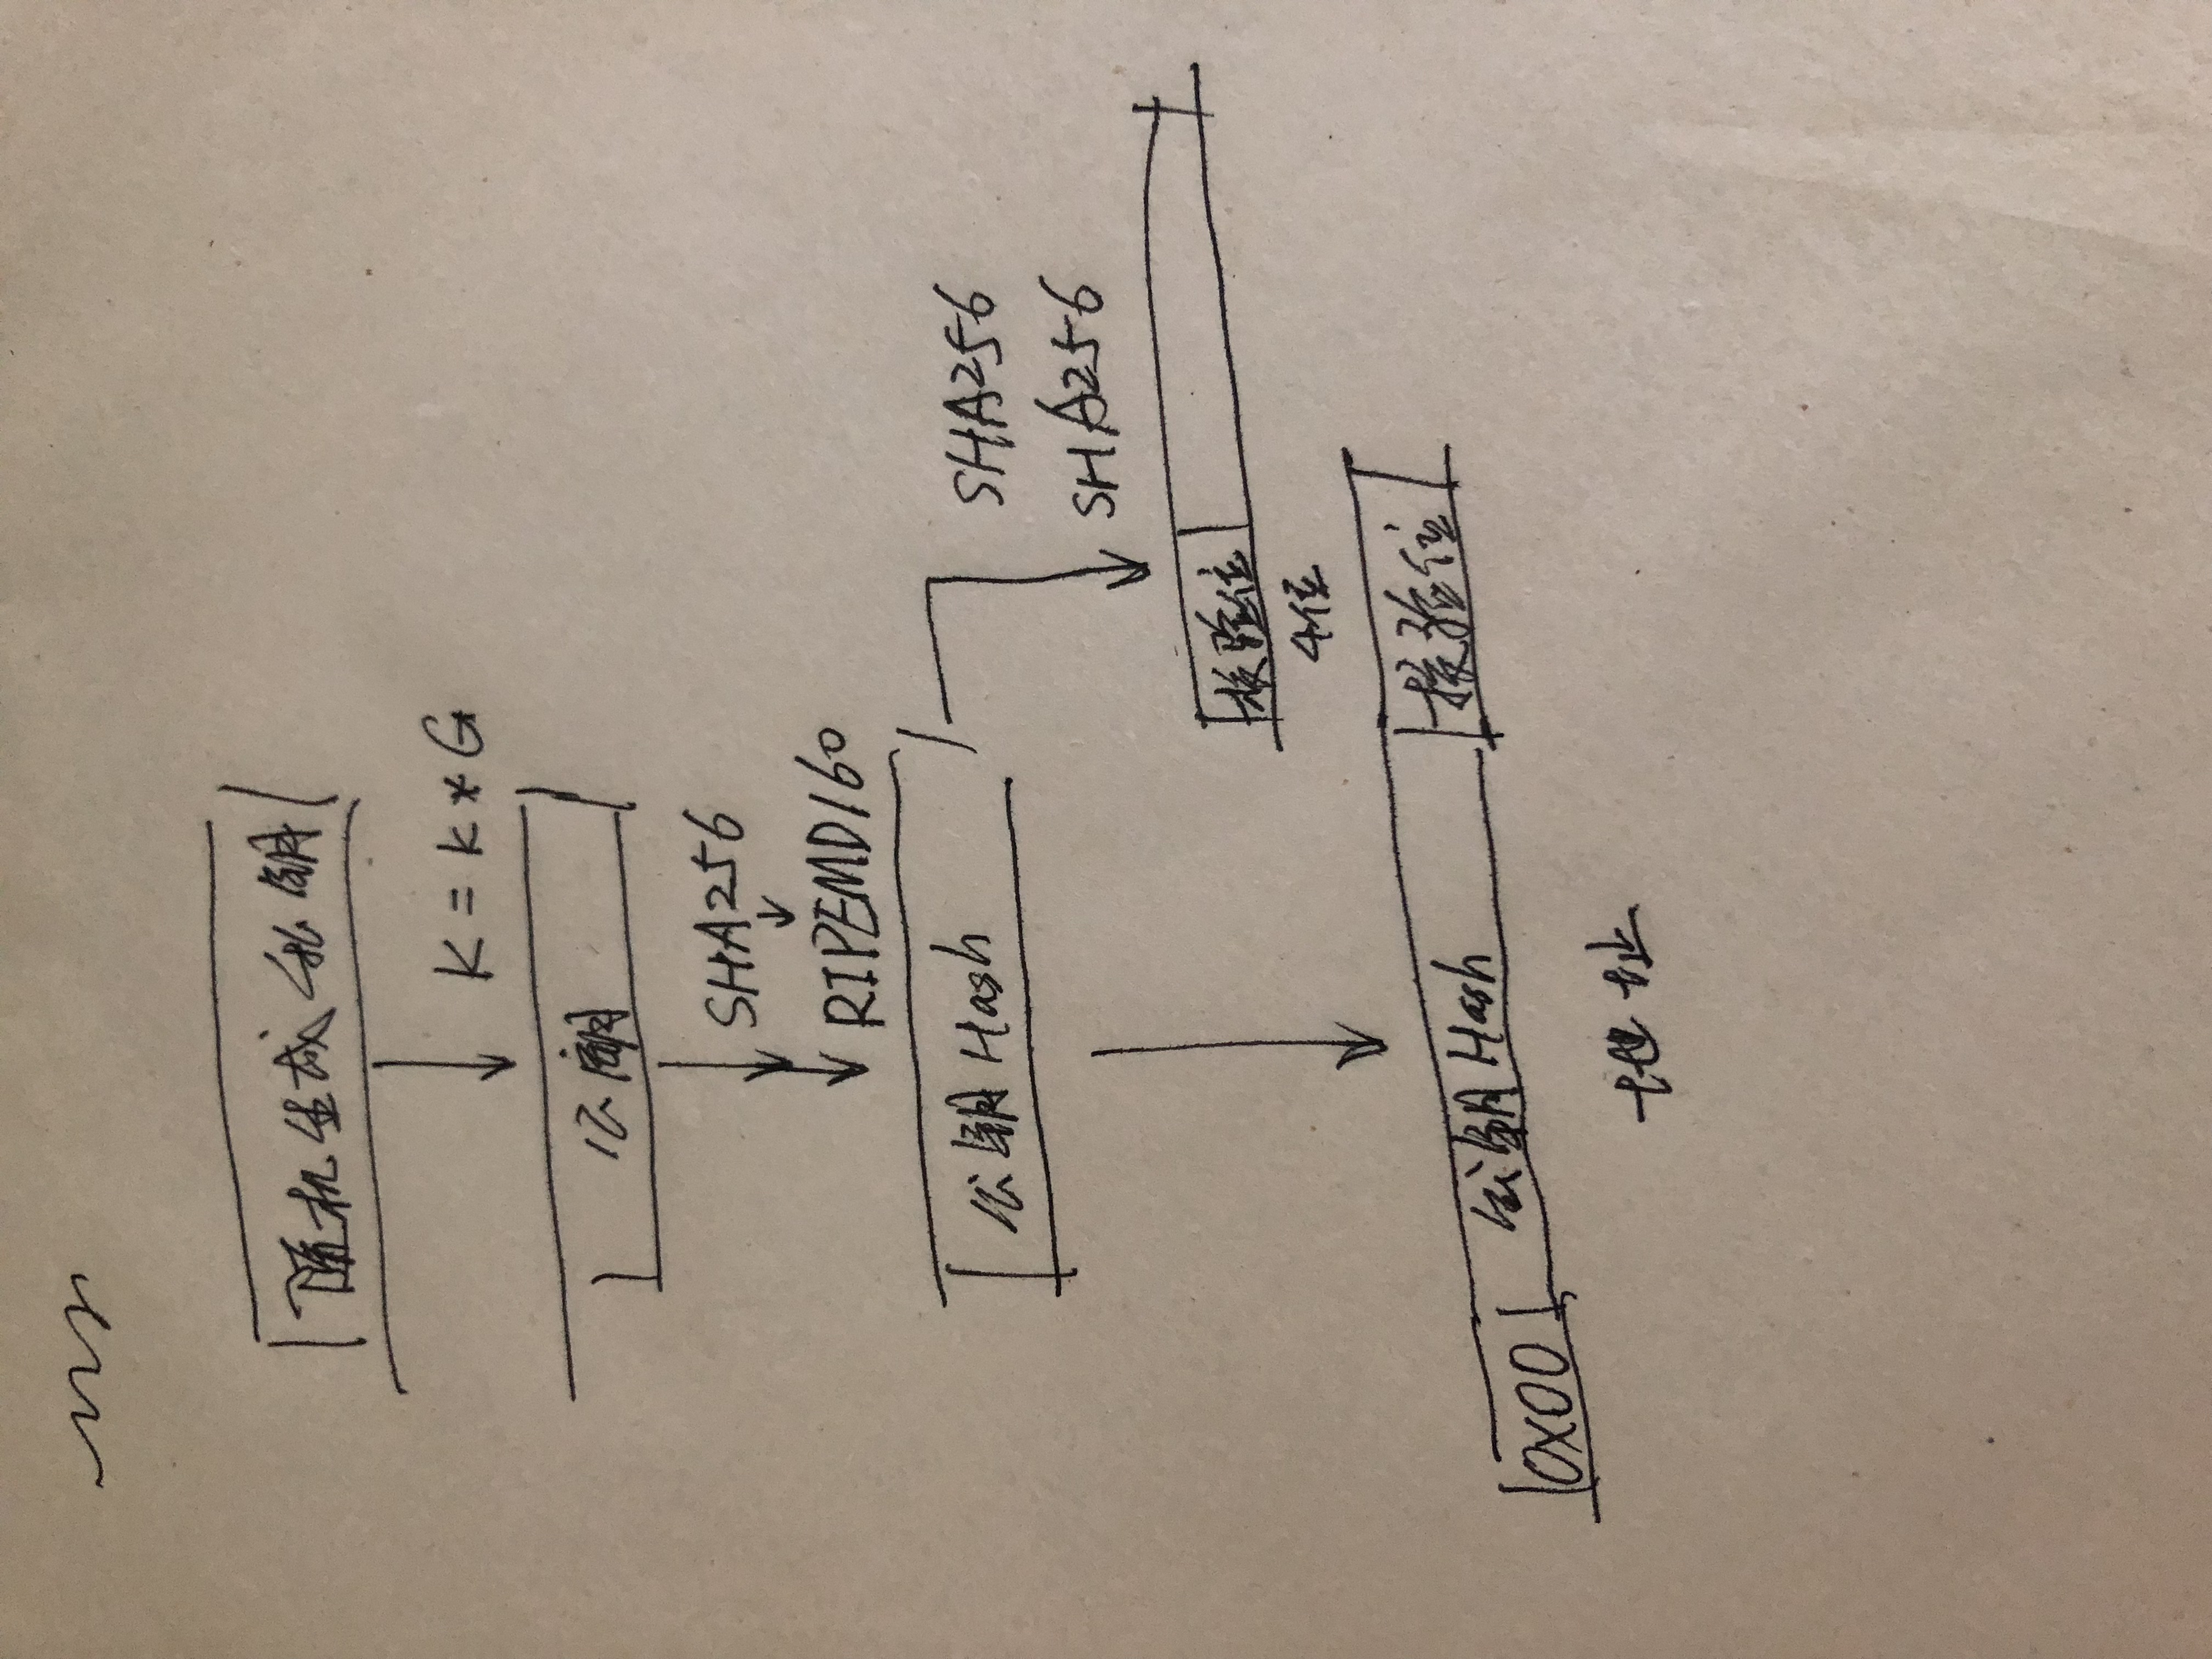 随机生成私钥
K = k * G
公钥
SHA256
RIPEMD160
公钥Hash
SHA256
SHA256
校验位
4位
0X00 公钥Hash 校验位
地址